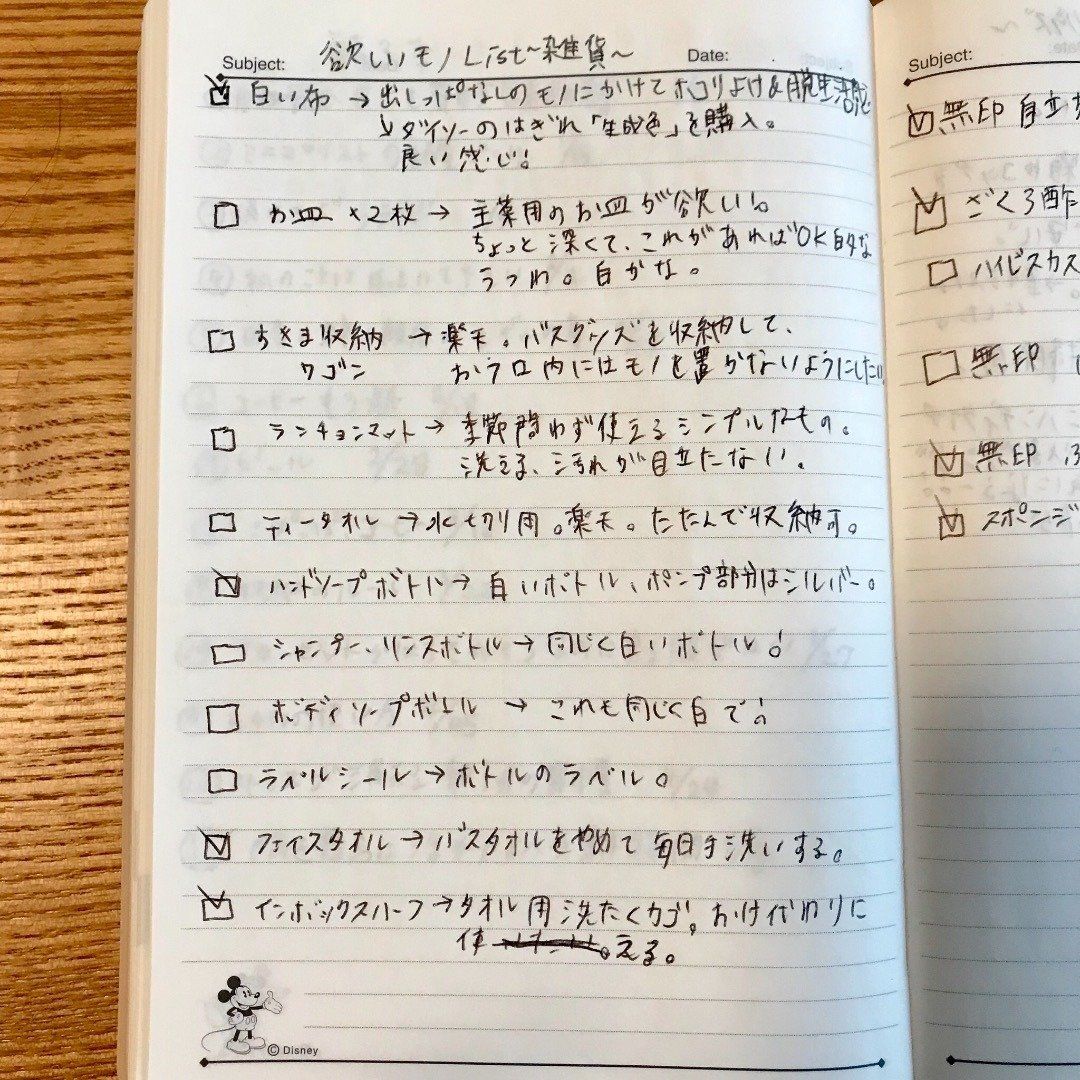 Subject: 欲しいモノList~雑貨~ Date:
白い布 → 出しっぱなしのモノにかけてホコリよけ&脱生活感
↳ダイソーのはぎれ「生成色」を購入。
良い感じ!
お皿×2枚 → 主菜用のお皿が欲しい。
ちょっと深くて、これがあればOK的な
うつわ。白かな。
すきま収納 → 楽天。バスグッズを収納して、
ワゴン おフロ内にはモノを置かないようにしたい
ランチョンマット → 季節問わず使えるシンプルなもの。
洗える、汚れが目立たない。
ティータオル → 水切り用。楽天。たたんで収納可。
ハンドソープボトル → 白いボトル、ポンプ部分はシルバー。
シャンプー、リンスボトル → 同じく白いボトル!
ボディソープボトル → これも同じく白で!
ラベルシール → ボトルのラベル。
フェイスタオル → バスタオルをやめて毎日手洗いする。
インボックスハーフ → タオル用洗たくカゴ。おけ代わりに
使える。
© Disney
Subject:
無印 自立
ざくろ酢
ハイビスカス
無印
無印
スポンジ